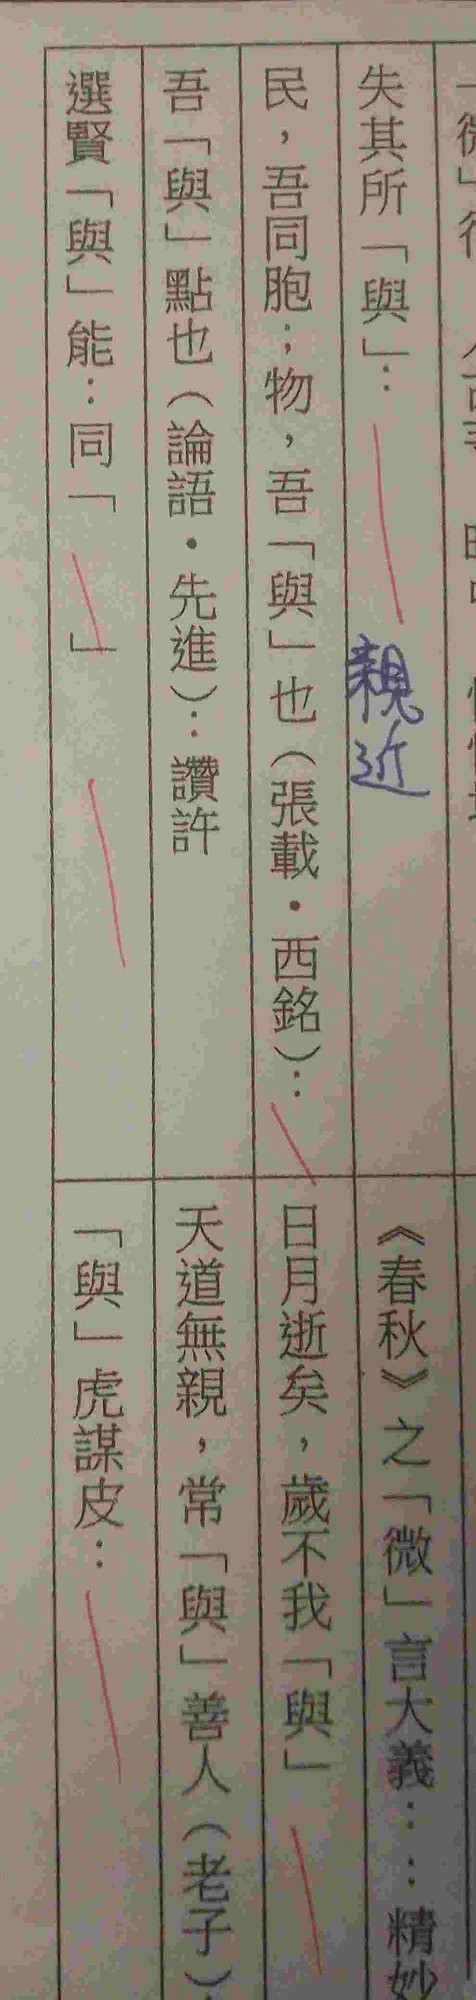 失其所「與」：親近
民，吾同胞；物，吾「與」也（張載．西銘）：
吾「與」點也（論語．先進）：讚許
選賢「與」能：同「 」
《春秋》之「微」言大義：：精妙
日月逝矣，歲不我「與」
天道無親，常「與」善人（老子）：
「與」虎謀皮：